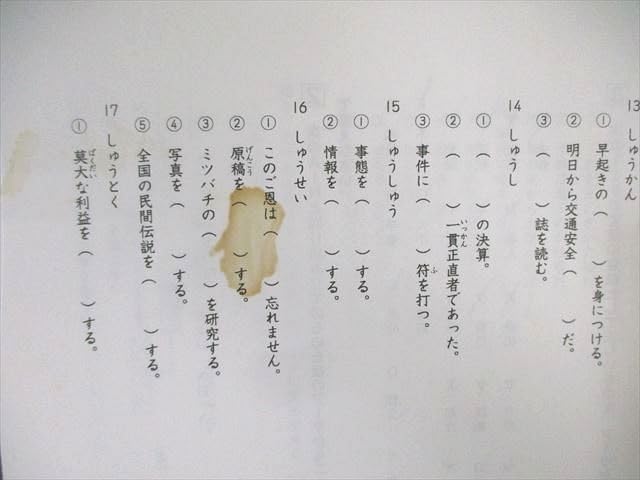 13 しゅうかん
① 早起きの（　　）を身につける。
② 明日から交通安全（　　）だ。
③（　　）誌を読む。
14 しゅうし
①（　　）の決算。
②（　　）一貫正直者であった。
③ 事件に（　　）符を打つ。
15 しゅうしゅう
① 事態を（　　）する。
② 情報を（　　）する。
16 しゅうせい
① このご恩は（　　）忘れません。
② 原稿を（　　）する。
③ ミツバチの（　　）を研究する。
④ 写真を（　　）する。
⑤ 全国の民間伝説を（　　）する。
17 しゅうとく
① 莫大な利益を（　　）する。
いっかん
ふ
げんこう
ばくだい